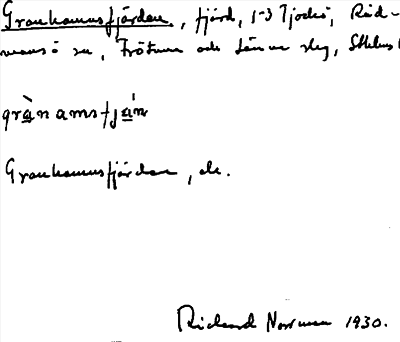 Granhamnsfjärden, fjärd, 1-3 Tjockö, Råd-
mansö sn, Frötuna och Länna slg, Sthlms l
grànamsfján
Granhamnsfjärden, ek.
Rickard Norrman 1930.